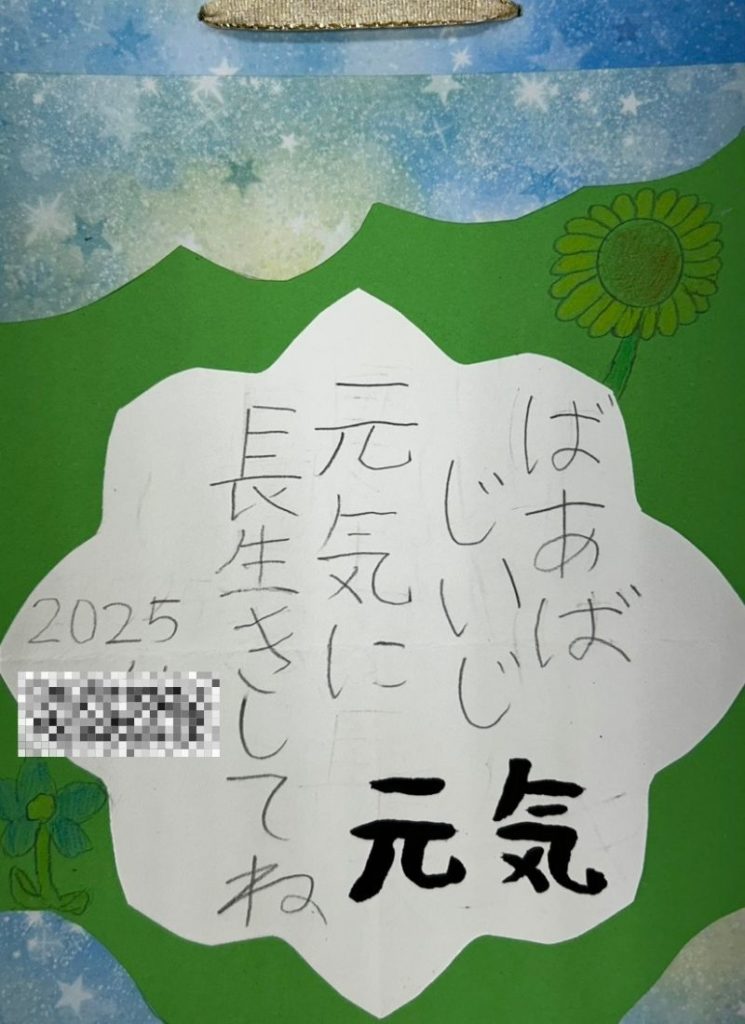 ばあば
じいじ
元気に
長生きしてね
2025
元気